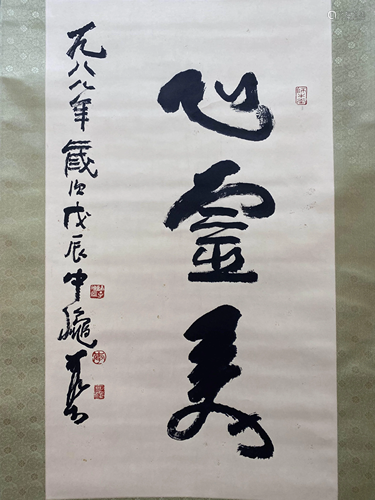 心灵美
一九八八年歲次戊辰中秋